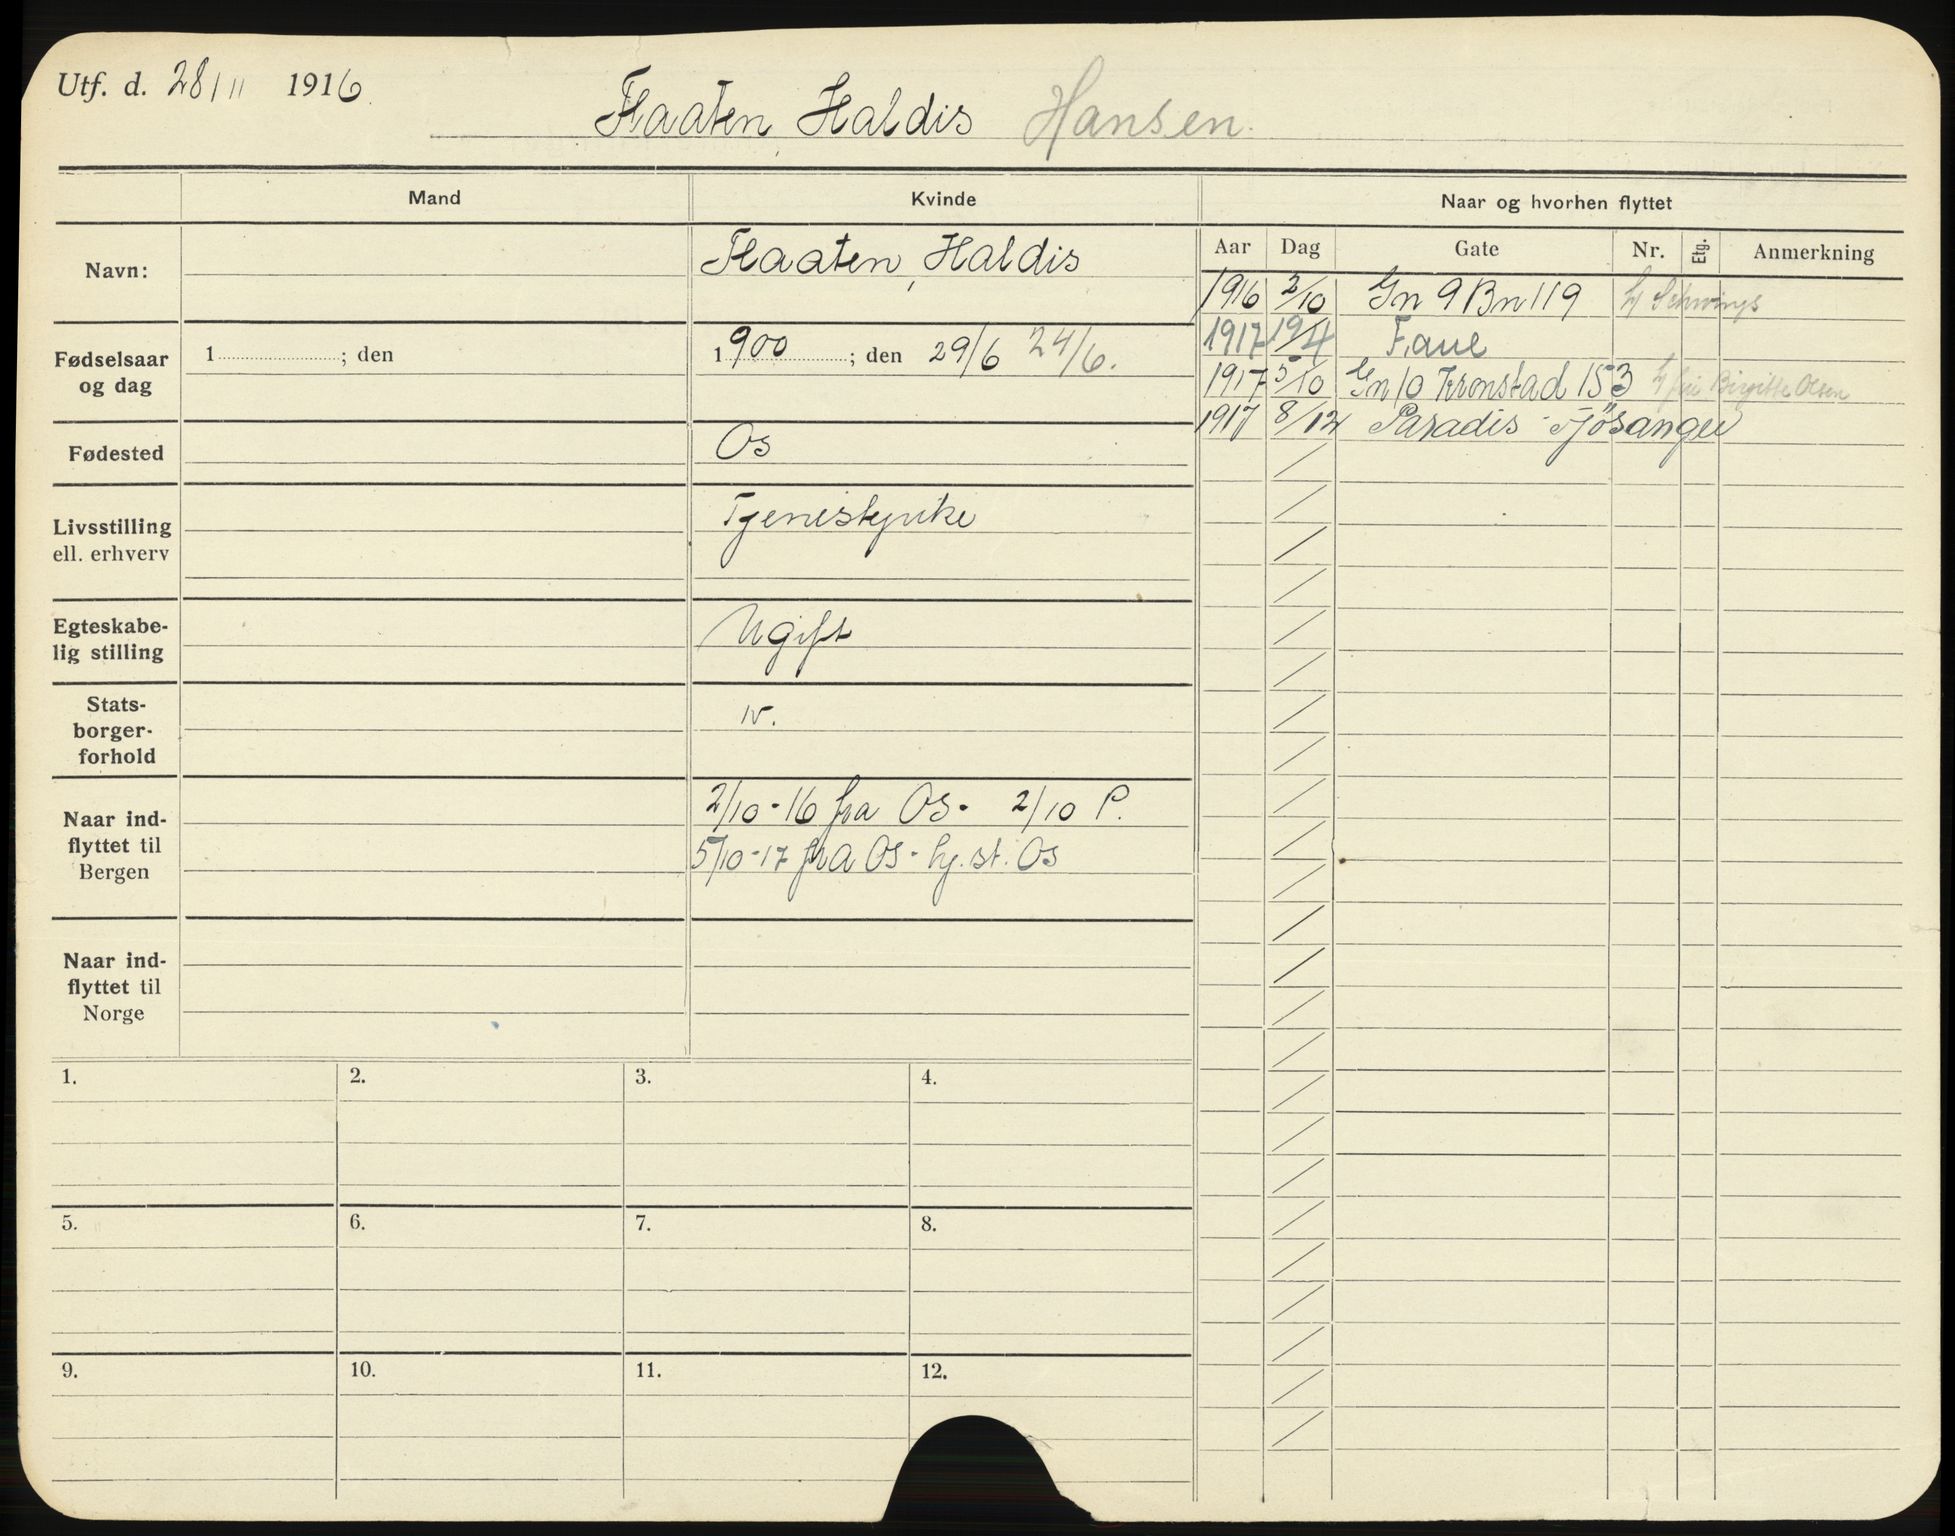 Utf. d. 28/11 1916
Flaaten, Haldis Hansen.
Mand Kvinde Naar og hvorhen flyttet
Aar Dag Gate Nr. Etg. Anmerkning
Navn: Flaaten, Haldis
1916 2/10 Gn 9 Bn 119 h/ Schwings
1917 19/4 Fane
Fødselsaar og dag 1 ; den 1900 ; den 29/6 24/6.
1917 5/10 Gn 10 Kronstad 153 Birgitte Olsen
1917 8/12 Paradis - Fjösanger
Fødested Os
Livsstilling
ell. erhverv
Tjenestepike
Egteskabe-
lig stilling
Ugift
Stats-
borger-
forhold
N.
Naar ind-
flyttet til
Bergen
2/10-16 fra Os. 2/10 P.
5/10-17 fra Os. hj.st. Os
Naar ind-
flyttet til
Norge
1. 2. 3. 4.
5. 6. 7. 8.
9. 10. 11. 12.